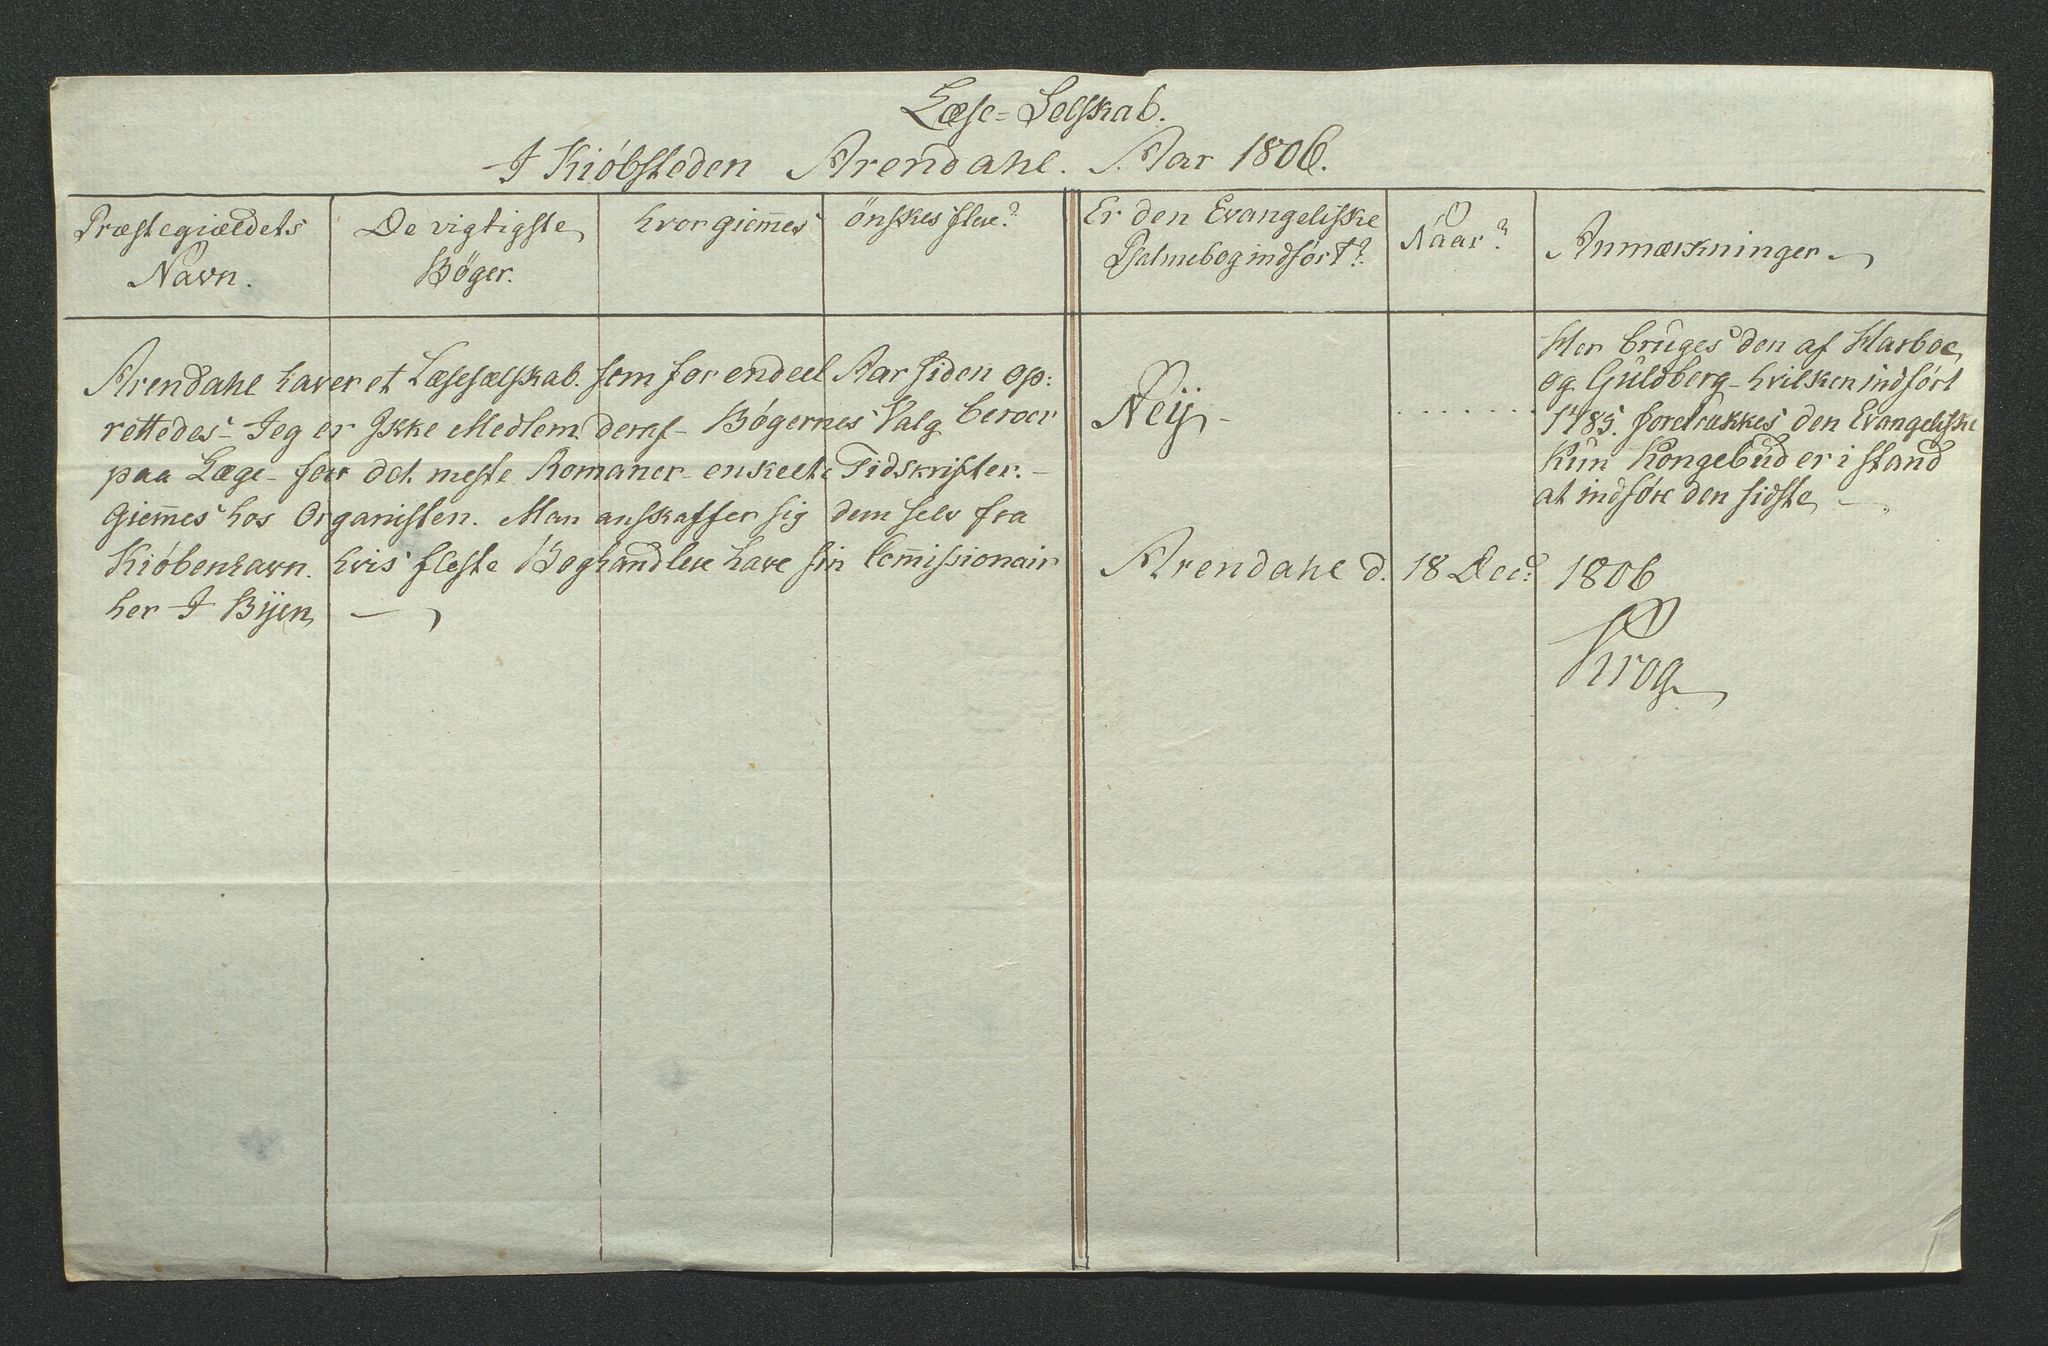 Læse=Selskab.
I Kiøbsteden Arendahl. Aar 1806.
Præstegiældets Navn.
De vigtigste Bøger.
hvor giem̄es
ønskes flere?
Er den Evangeliske Psalmebog indført?
Naar?
Anmærkninger
Arendahl haver et Læsesælskab. som for endeel Aar siden op:
rettedes - Jeg er Ikke Medlem deraf - Bøgernes Valg beroer
paa Læge - for det meste Romaner - enkelte Tidskrifter. -
Giem̄es hos Organisten. Man anskaffer sig dem selv fra
Kiøbenhavn. hvis fleste Boghandlere have sin Com̄issionair
her I Byen
Neij -
. . . . . . .
Her bruges den af Harboe
og Guldberg - hvilken indført
1785. foretrækkes den Evangeliske
Kun Kongebud er i stand
at indføre den sidste -
Arendahl d. 18 Dec: 1806
Krog